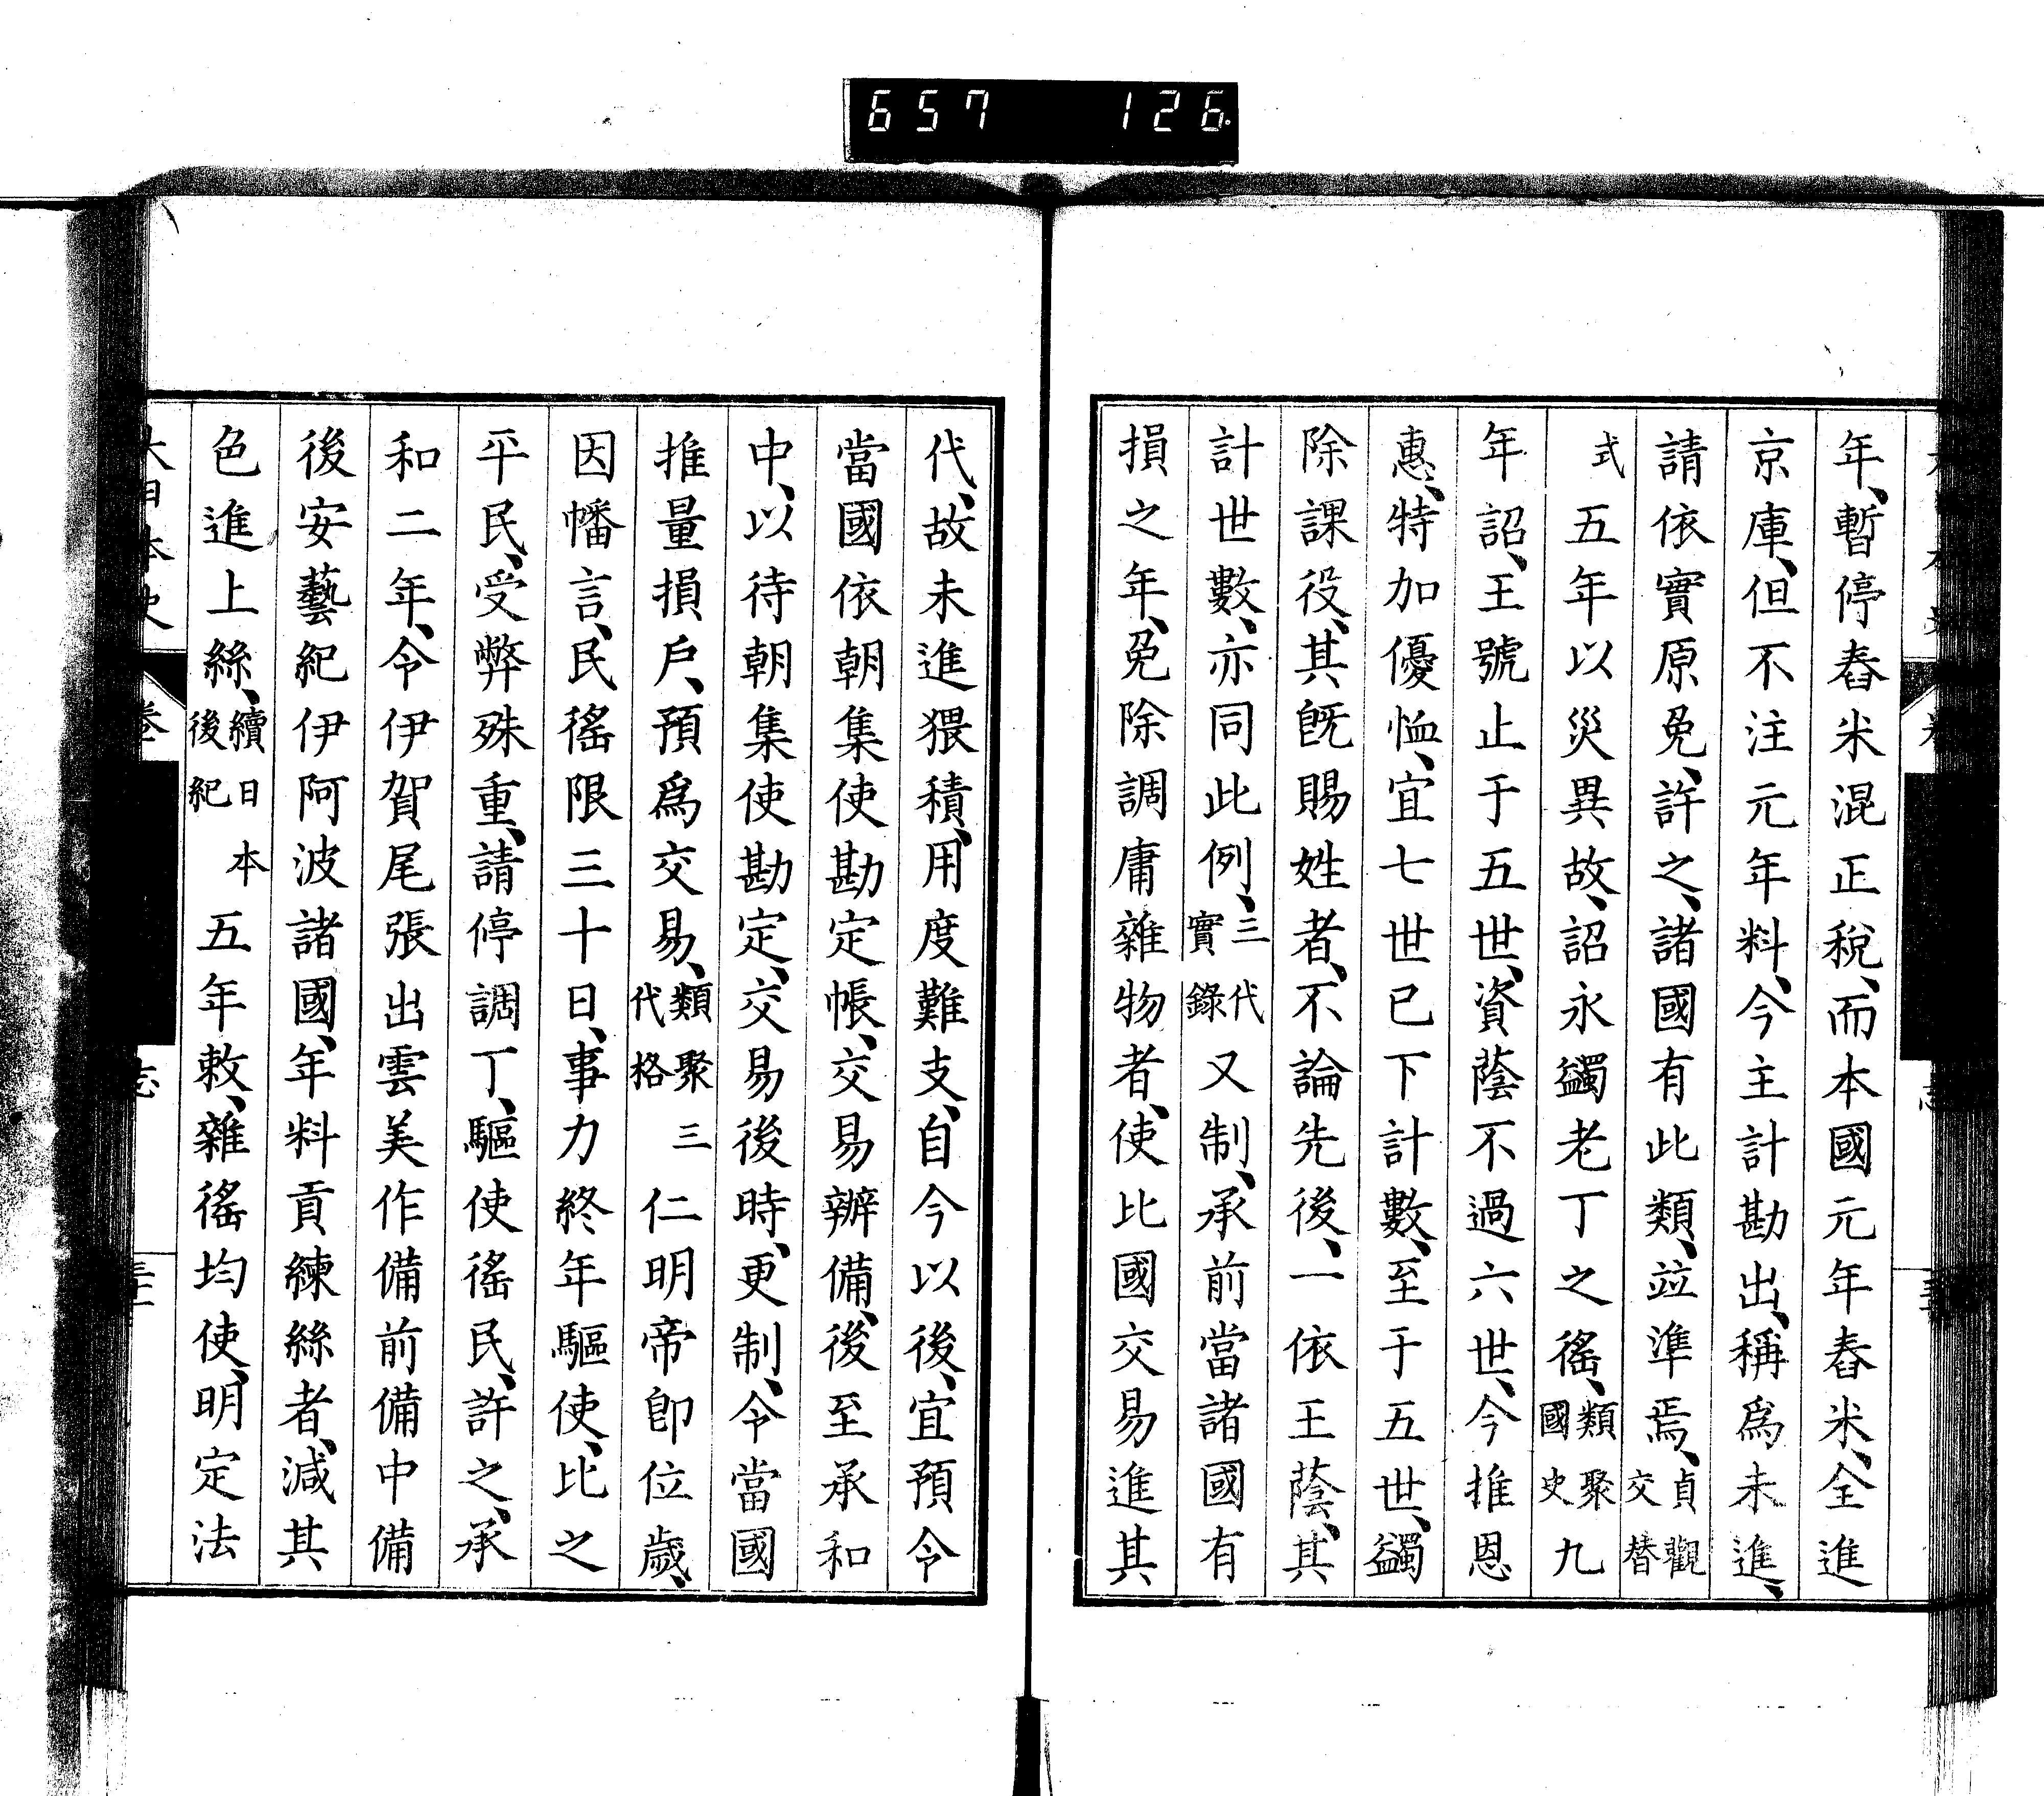 657 126
年、暫停舂米混正稅、而本國元年舂米、全進
京庫、但不注元年料、今主計勘出、稱爲未進、
請依實原免、許之、諸國有此類、竝準焉、貞觀交替
式五年以災異故、詔永蠲老丁之徭、類聚國史九
年詔、王號止于五世、資蔭不過六世、今推恩
惠、特加優恤、宜七世已下計數、至于五世、蠲
除課役、其旣賜姓者、不論先後、一依王蔭、其
計世數、亦同此例、三代實錄又制、承前當諸國有
損之年、免除調庸雜物者、使比國交易進其
代、故未進猥積、用度難支、自今以後、宜預令
當國依朝集使勘定帳、交易辦備、後至承和
中、以待朝集使勘定、交易後時、更制、令當國
推量損戶、預爲交易、類聚三代格仁明帝卽位歲、
因幡言、民徭限三十日、事力終年驅使、比之
平民、受弊殊重、請停調丁、驅使徭民、許之、承
和二年、令伊賀尾張出雲美作備前備中備
後安藝紀伊阿波諸國、年料貢練絲者、減其
色進上絲、續日本後紀五年敕、雜徭均使、明定法
大日本史 卷 志